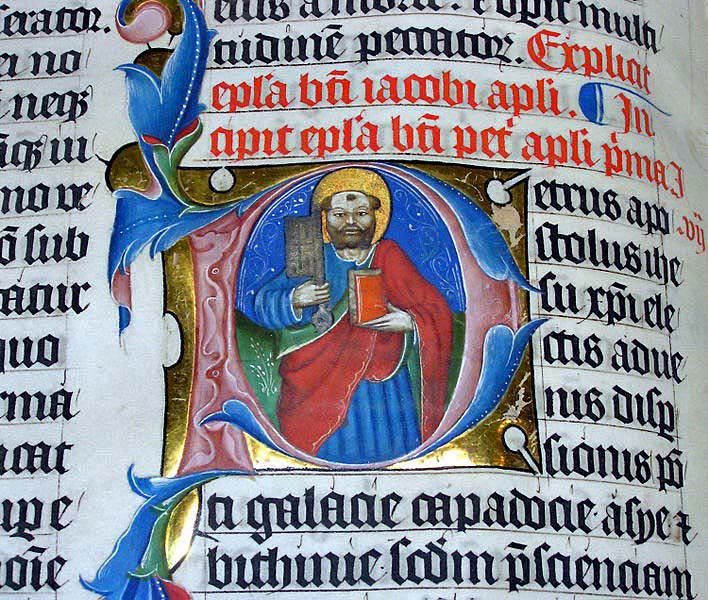 serator.
ei no
i neqꝫ
no ve
ō sub
tatur
quo
rma
icat
upe
oīe
eiuus a morte. ⁊ opit multi
tudinē peccatoꝝ. Explicit
ep̄la bt̄i iacobi apl̄i. In
cipit ep̄la bt̄i pet̄ apl̄i p̄ma I
Petrus apo
stolus ihe
su xp̄i ele
ctis adue
nis disp̄
sionis pō
ti galacie capadocie asye ⁊
bithinie scd̄m p̄scienciam